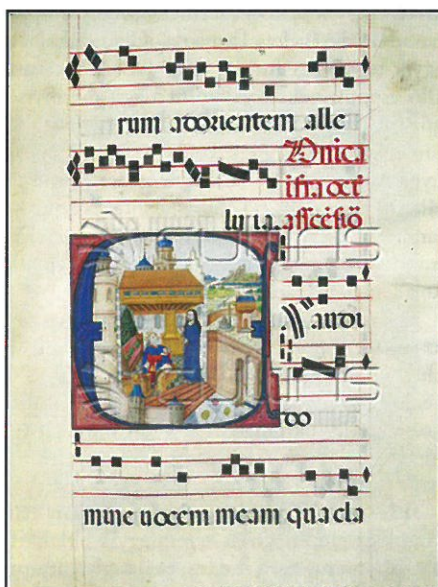 rum adorientem alle
Dnica
ifra oct
luia ascēsiō
Exaudi
do
mine uocem meam qua cla